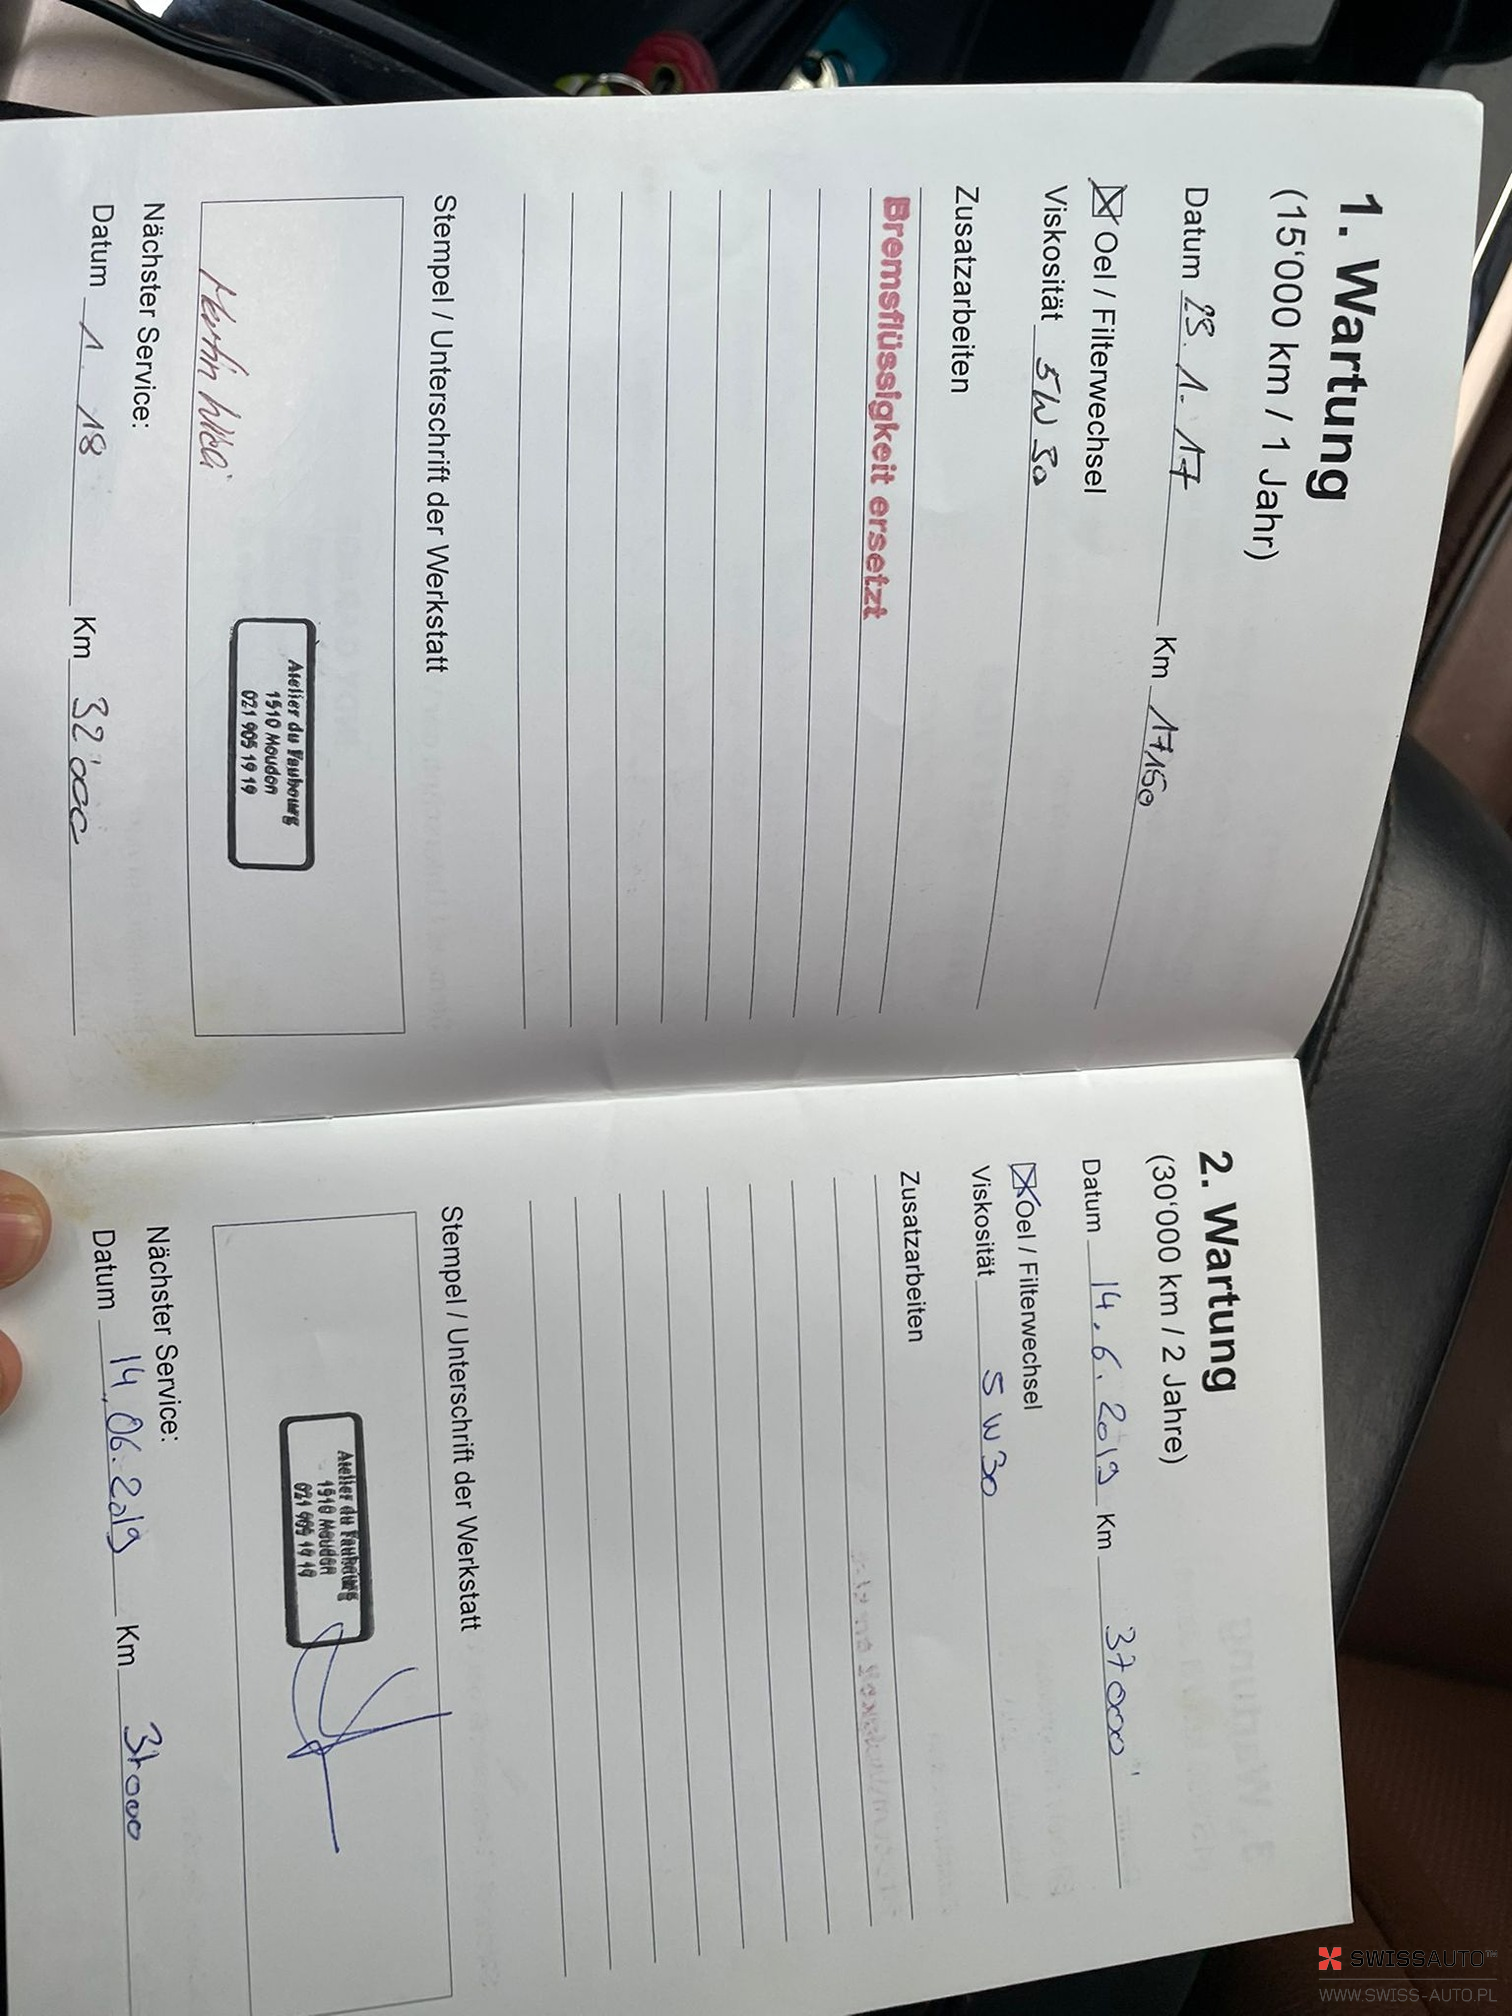 1. Wartung
(15'000 km / 1 Jahr)
Datum 23.1.17 Km 17150
Oel / Filterwechsel
Viskosität 5W30
Zusatzarbeiten
Bremsflüssigkeit ersetzt
Stempel / Unterschrift der Werkstatt
Atelier du Faubourg
1510 Moudon
021 905 19 19
Nächster Service:
Datum 1. 18 Km 32'000
2. Wartung
(30'000 km / 2 Jahre)
Datum 14.6.2019 Km 37000
Oel / Filterwechsel
Viskosität 5W30
Zusatzarbeiten
Stempel / Unterschrift der Werkstatt
Atelier du Faubourg
1510 Moudon
021 905 19 19
Nächster Service:
Datum 14.06.2019 Km 37000
SWISSAUTO™
WWW.SWISS-AUTO.PL